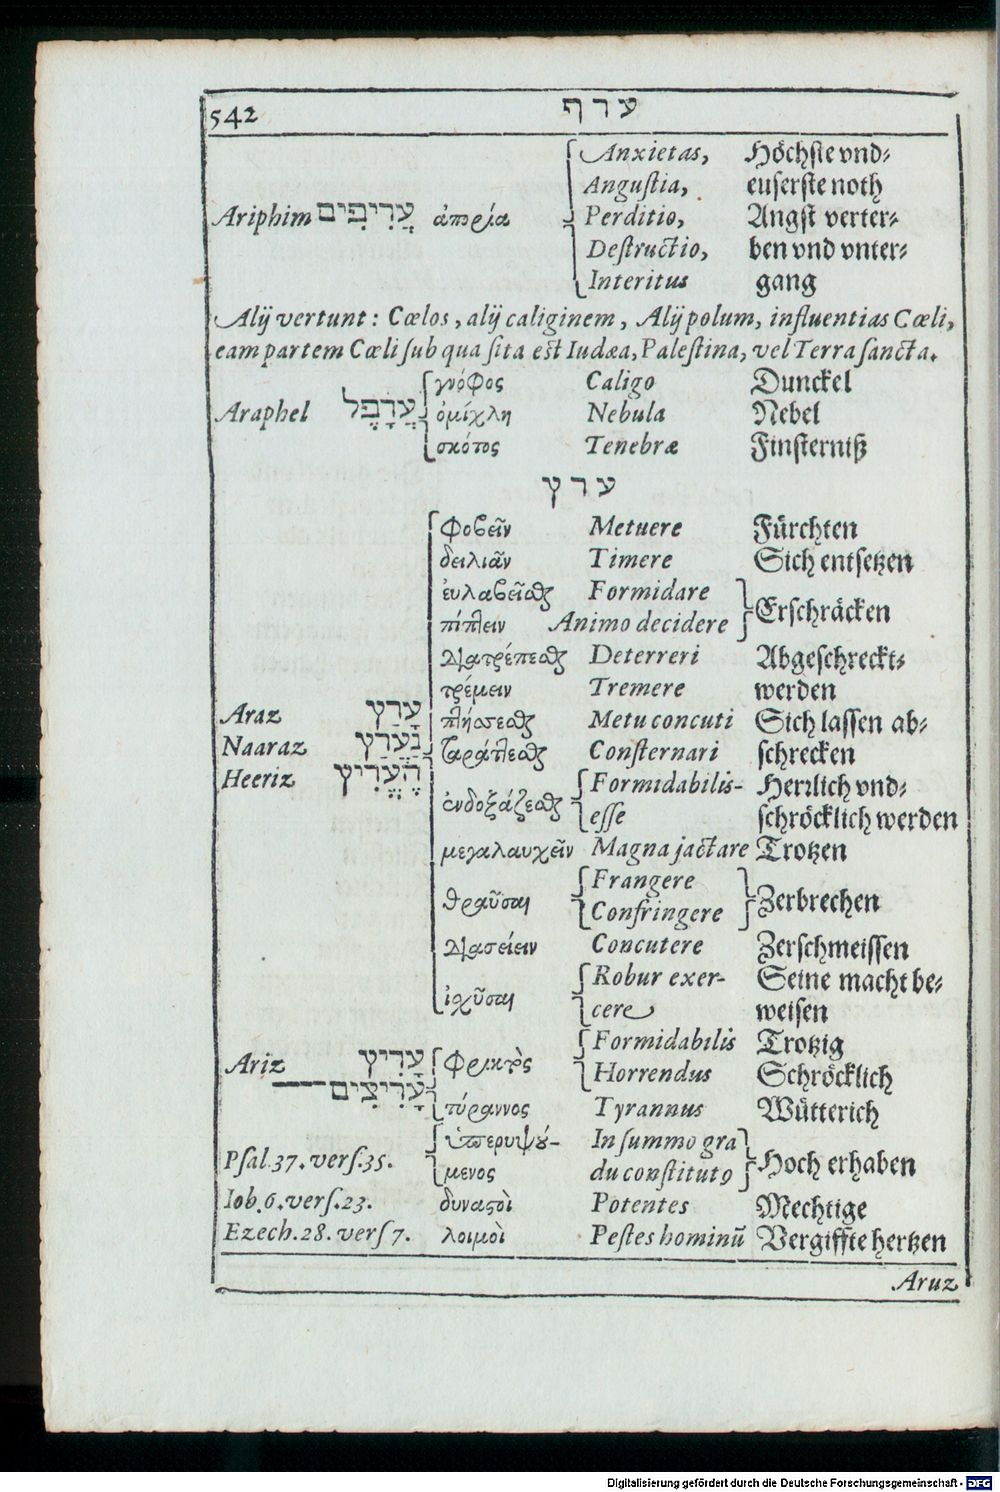 542 ערף
Anxietas, Höchste vnd-
Angustia, euserste noth
Ariphim עֲרִיפִים ἀπορία Perditio, Angst verter-
Destructio, ben vnd vnter-
Interitus gang
Alij vertunt: Cœlos, alij caliginem, Alij polum, influentias Cœli,
eam partem Cœli sub qua sita est Iudæa, Palestina, vel Terra sancta.
γνόφος Caligo Dunckel
Araphel עֲרָפֶל ὁμίχλη Nebula Nebel
σκότος Tenebræ Finsterniß
ערץ
φοβεῖν Metuere Fürchten
δειλιᾶν Timere Sich entsetzen
ἐυλαβεῖσθαι Formidare
Erschräcken
πίπτειν Animo decidere
διατρέπεσθαι Deterreri Abgeschreckt-
τρέμειν Tremere werden
Araz עָרַץ πτήσσεσθαι Metu concuti Sich lassen ab-
Naaraz נַעֲרַץ ταράττεσθαι Consternari schrecken
Heeriz הֶעֱרִיץ Formidabilis- Herrlich vnd-
ἐνδοξάζεσθαι esse schröcklich werden
μεγαλαυχεῖν Magna jactare Trotzen
Frangere
θραῦσαι Zerbrechen
Confringere
διασείειν Concutere Zerschmeissen
Robur exer- Seine macht be-
ἰσχῦσαι cere weisen
Formidabilis Trotzig
Ariz עָרִיץ φρικτὸς Horrendus Schröcklich
עָרִיצִים τύραννος Tyrannus Wütterich
ὑπερυψού- In summo gra
Psal.37.vers.35. Hoch erhaben
μενος du constitutꝰ
Iob.6.vers.23. δυναστοὶ Potentes Mechtige
Ezech.28.vers 7. λοιμοὶ Pestes hominū Vergiffte hertzen
Aruz
Digitalisierung gefördert durch die Deutsche Forschungsgemeinschaft - DFG